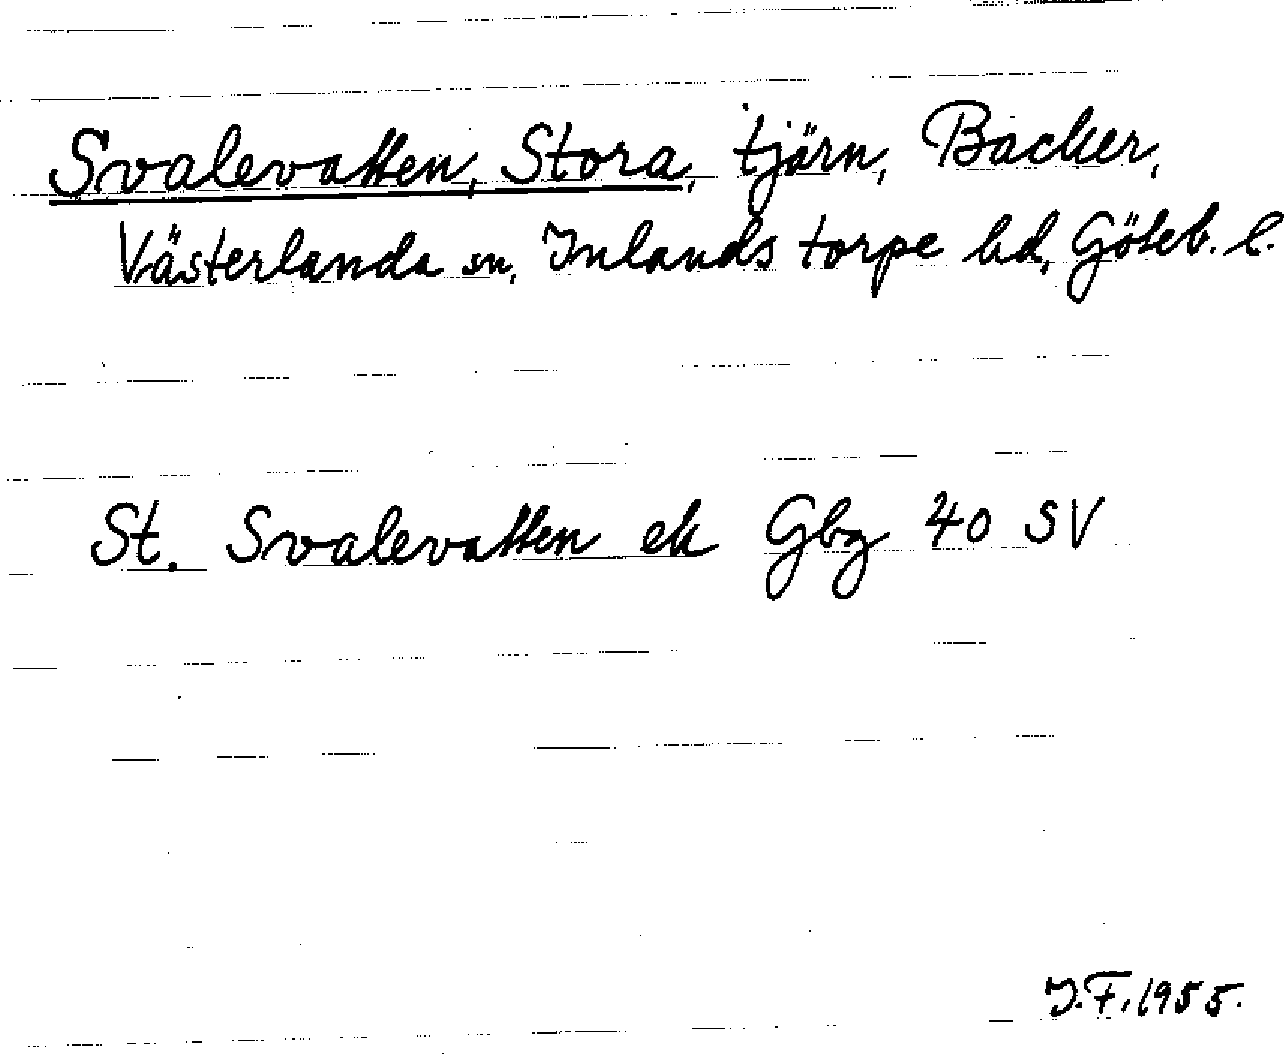 Svalevatten, Stora, tjärn, Backer,
Västerlanda sn, Inlands torpe hd, Göteb. l.
St. Svalevatten ek Gbg 40 SV
J.F. 1955.